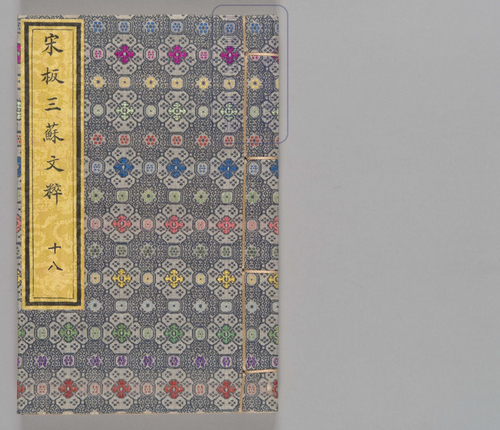 宋板三蘇文粹
十八